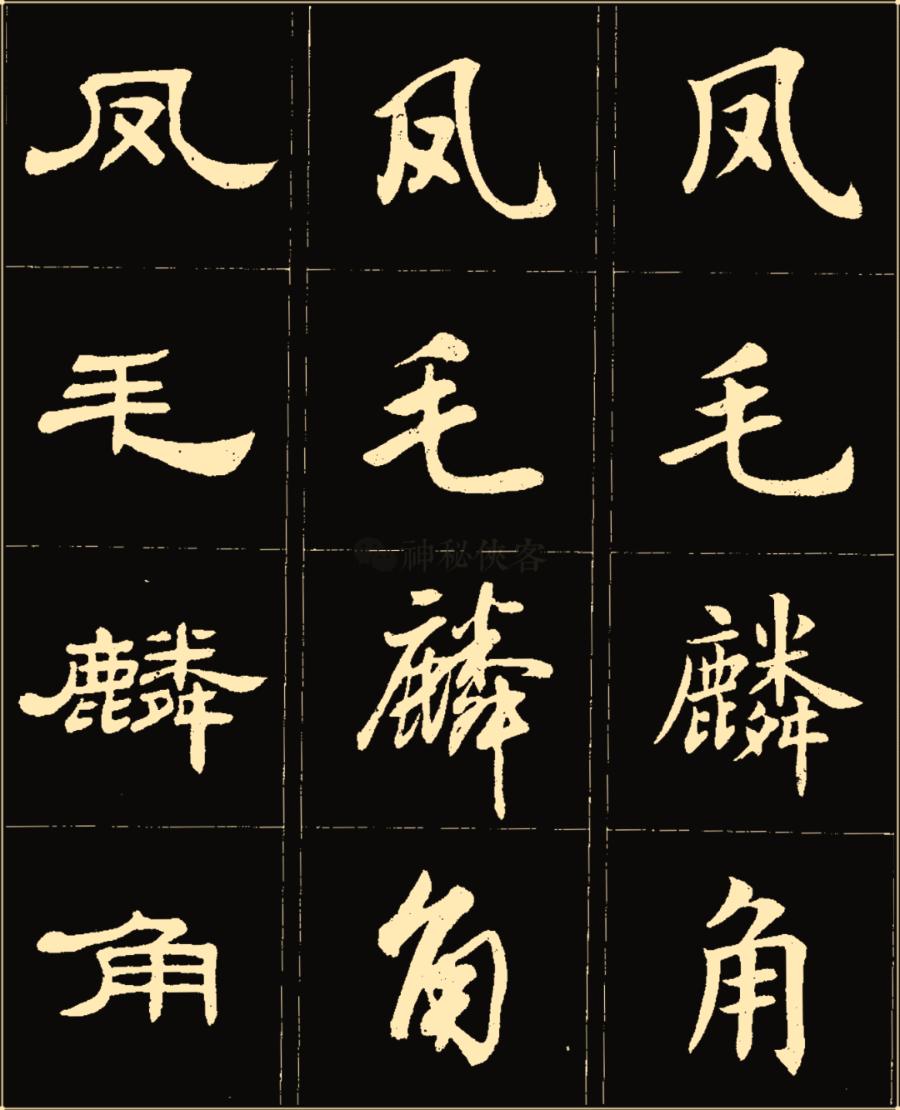 凤 凤 凤
毛 毛 毛
麟 麟 麟
角 角 角
神秘侠客